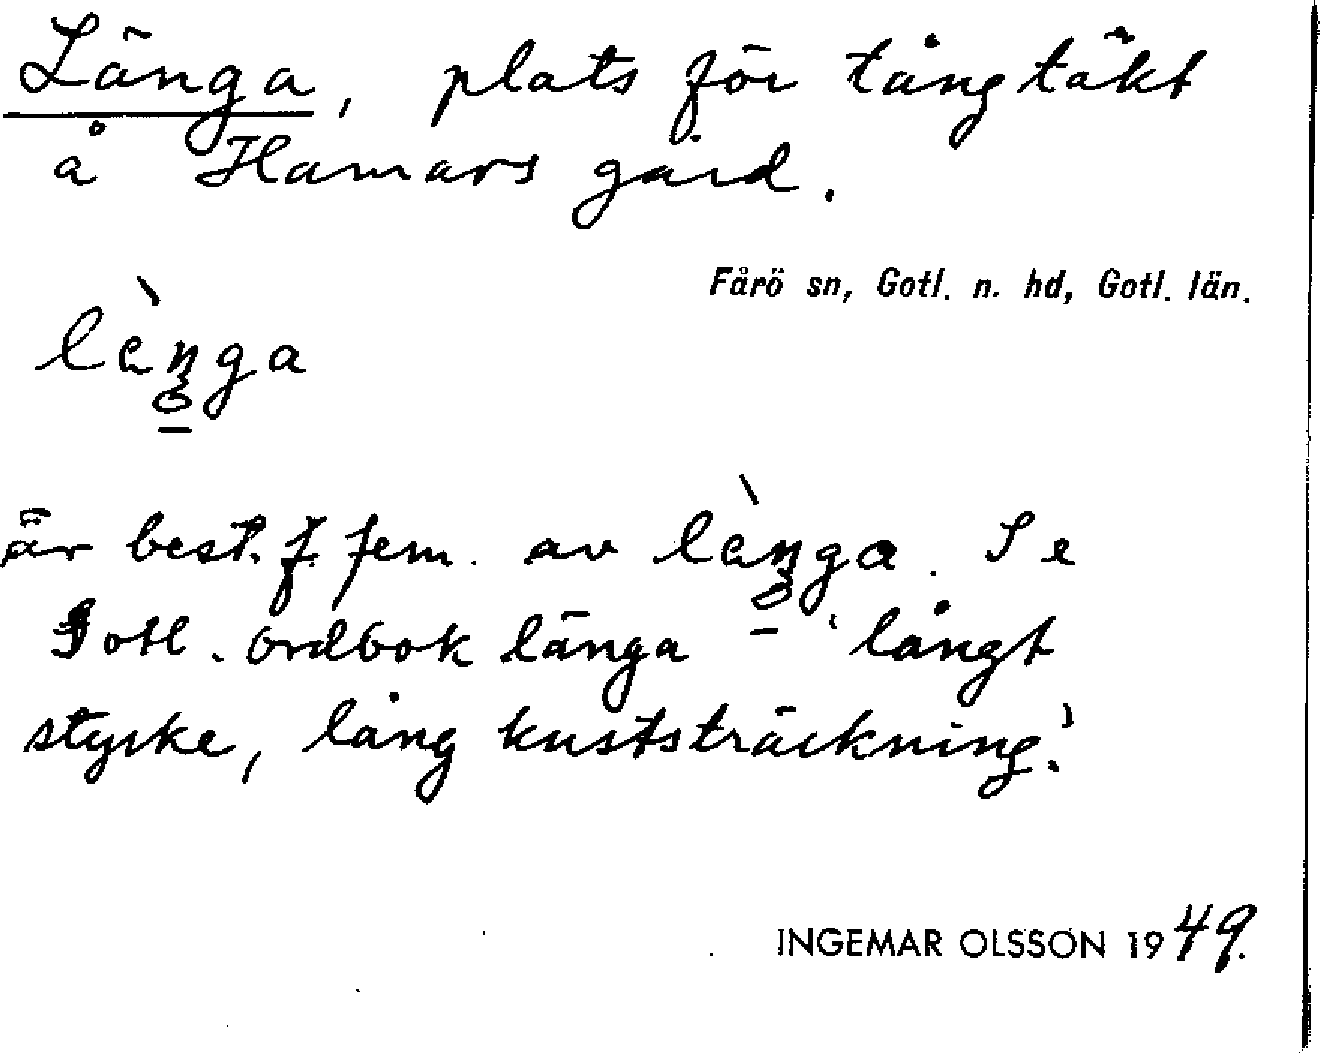 Länga, plats för tångtäkt
å Hamars gård.
Fårö sn, Gotl. n. hd, Gotl. län.
lèn̥ga
är best. f. fem. av lèn̥ga. Se
Gotl. ordbok länga - 'långt
stycke, lång kuststräckning.'
INGEMAR OLSSON 1949.